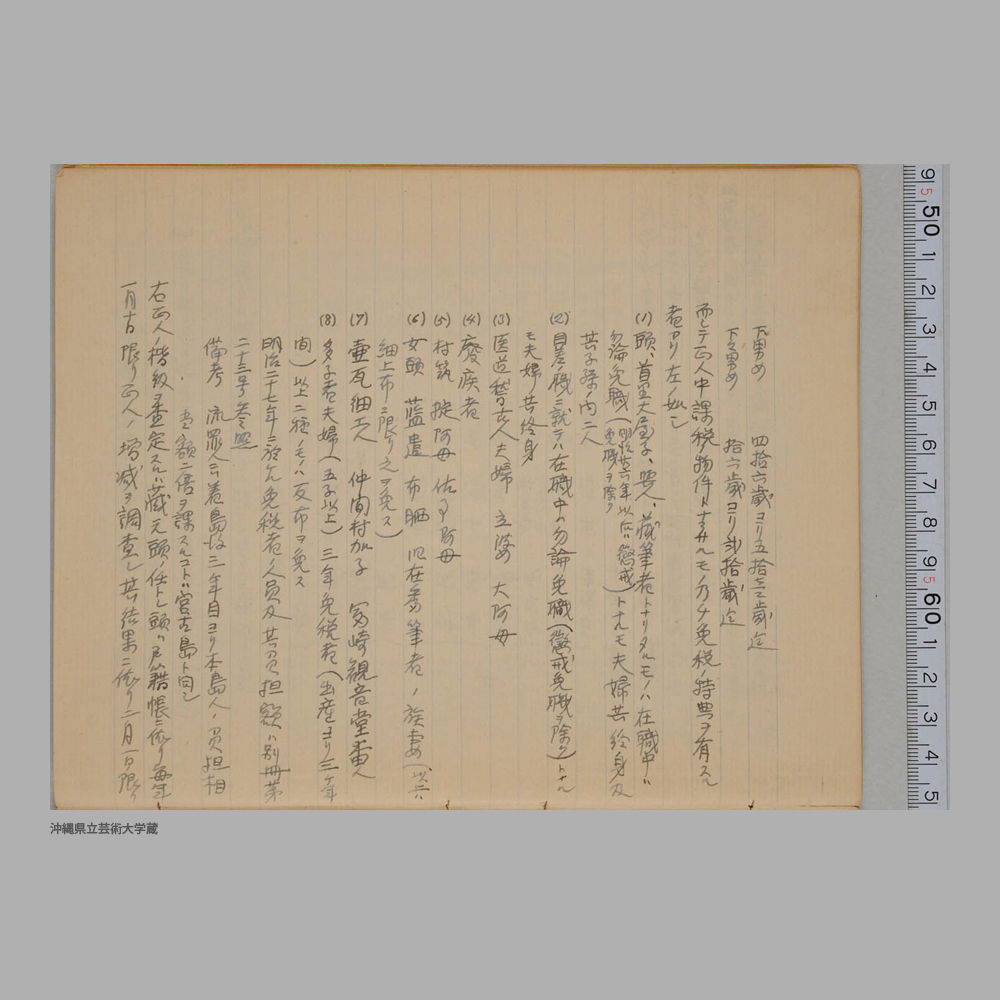 下男女 四拾六歳ヨリ五拾歳迄
下々男女 拾六歳ヨリ弐拾歳迄
而シテ正人中課税物件トナサルモノ乃チ免税ノ特典ヲ有スル
者アリ左ノ如シ
(1)頭、首里大屋子、与人、蔵筆者トナリタルモノハ在職中ハ
勿論免職(明治廿六年以后ハ懲戒免職ヲ除ク)トナルモ夫婦共終身及
其子孫ノ内二人
(2)目差ノ職ニ就テハ在職中ハ勿論免職(懲戒免職ヲ除ク)トナル
モ夫婦共終身
(3)医道稽古人夫婦 立婆 大阿母
(4)廃疾者
(5)村筑 掟阿母 佐事阿母
(6)女頭 藍遣 布晒 旧在番筆者ノ族妻(以下
細上布ニ限リ之ヲ免ス)
(7)壷瓦細工人 仲間村加子 冨崎観音堂番人
(8)多子者夫婦(五子以上)三年免税者(出産ヨリ三ヶ年
間)以上二種ノモノハ反布ヲ免ス
明治二十七年ニ於ケル免税者ノ人員及其負担額ハ別冊第
二十三号参照
備考 流罪人ニシテ着島後三年目ヨリ本島人ノ負担相
当額二倍ヲ課スルコトハ宮古島ト同シ
右正人ノ階級ヲ査定スルハ蔵元頭ノ任トシ頭ハ戸籍帳ニ依リ毎年
一月十五日限リ正人ノ増減ヲ調査シ其結果ニ依リ二月一日限リ
沖縄県立芸術大学蔵
9 5 50 1 2 3 4 5 6 7 8 9 5 60 1 2 3 4 5